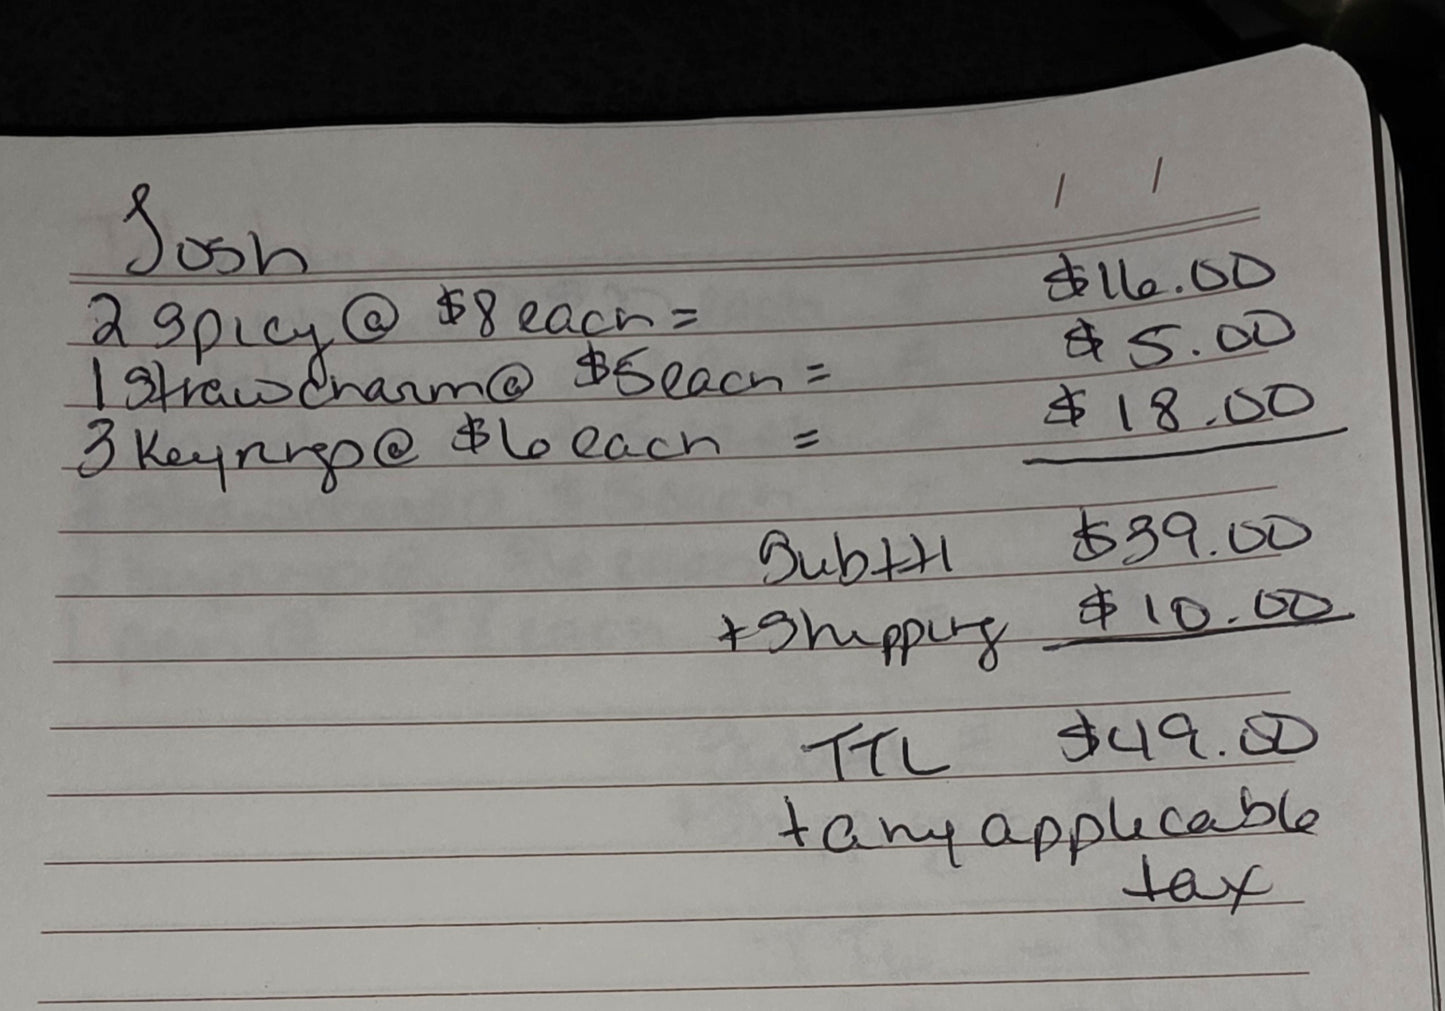 Josh
2 Spicy @ $8 each = $16.00
1 Straw Charm @ $5 each = $5.00
3 Keyrngs @ $6 each = $18.00
Subttl $39.00
+ Shipping $10.00
TTL $49.00
+ any applicable
tax